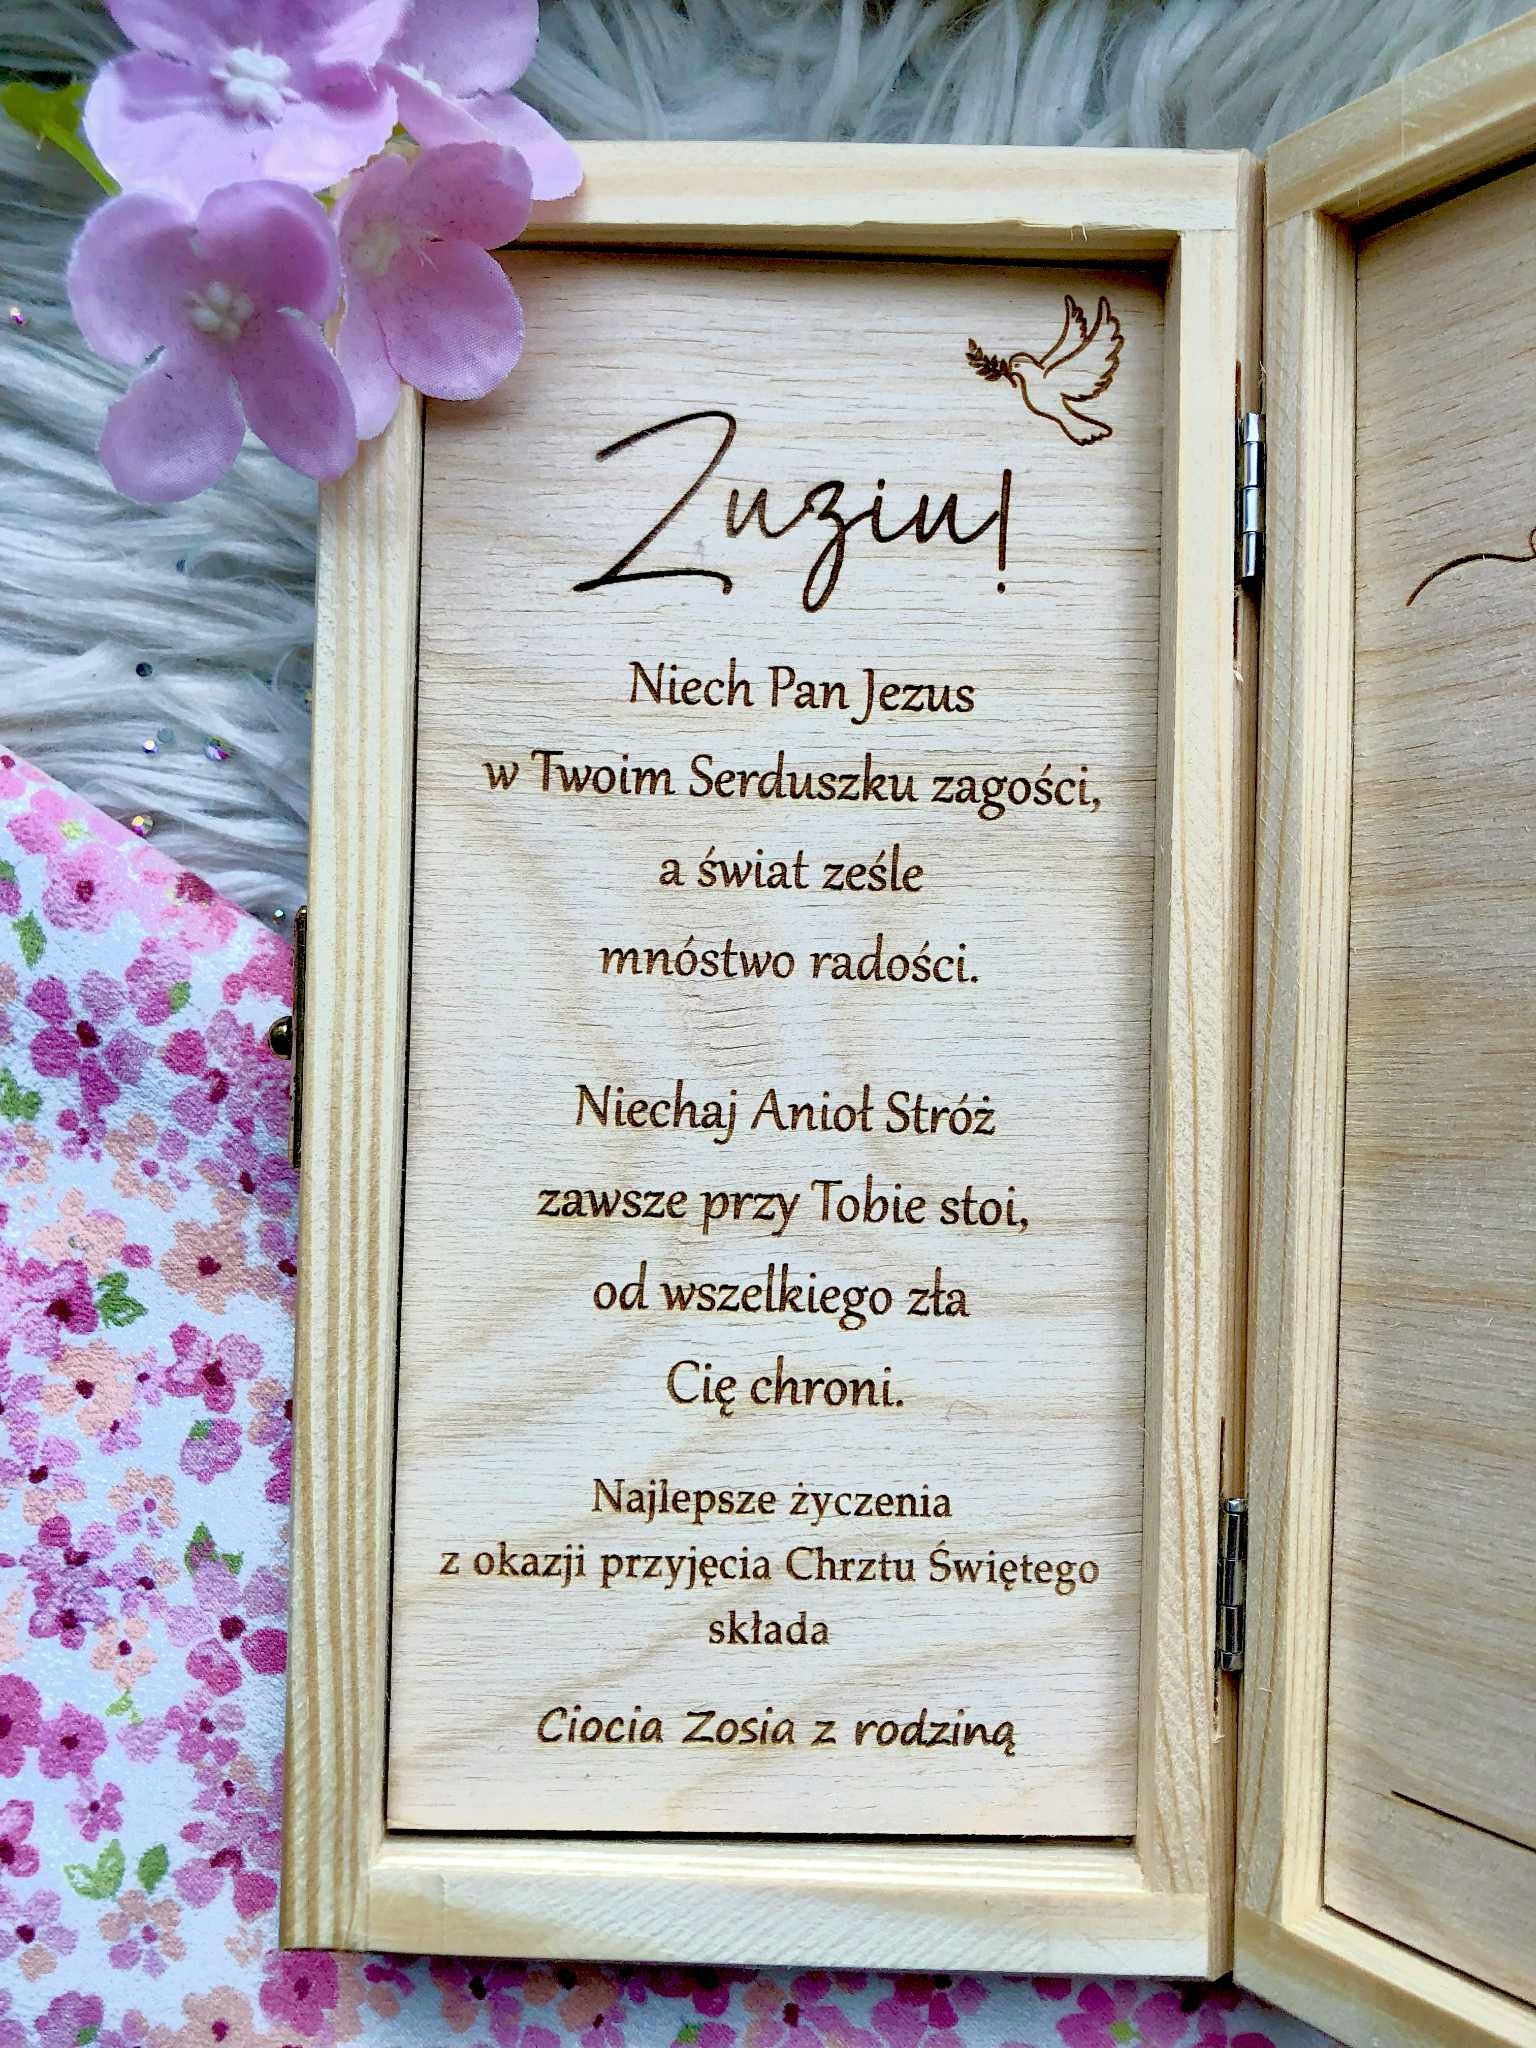 Zuziu!
Niech Pan Jezus
w Twoim Serduszku zagości,
a świat ześle
mnóstwo radości.
Niechaj Anioł Stróż
zawsze przy Tobie stoi,
od wszelkiego zła
Cię chroni.
Najlepsze życzenia
z okazji przyjęcia Chrztu Świętego
składa
Ciocia Zosia z rodziną